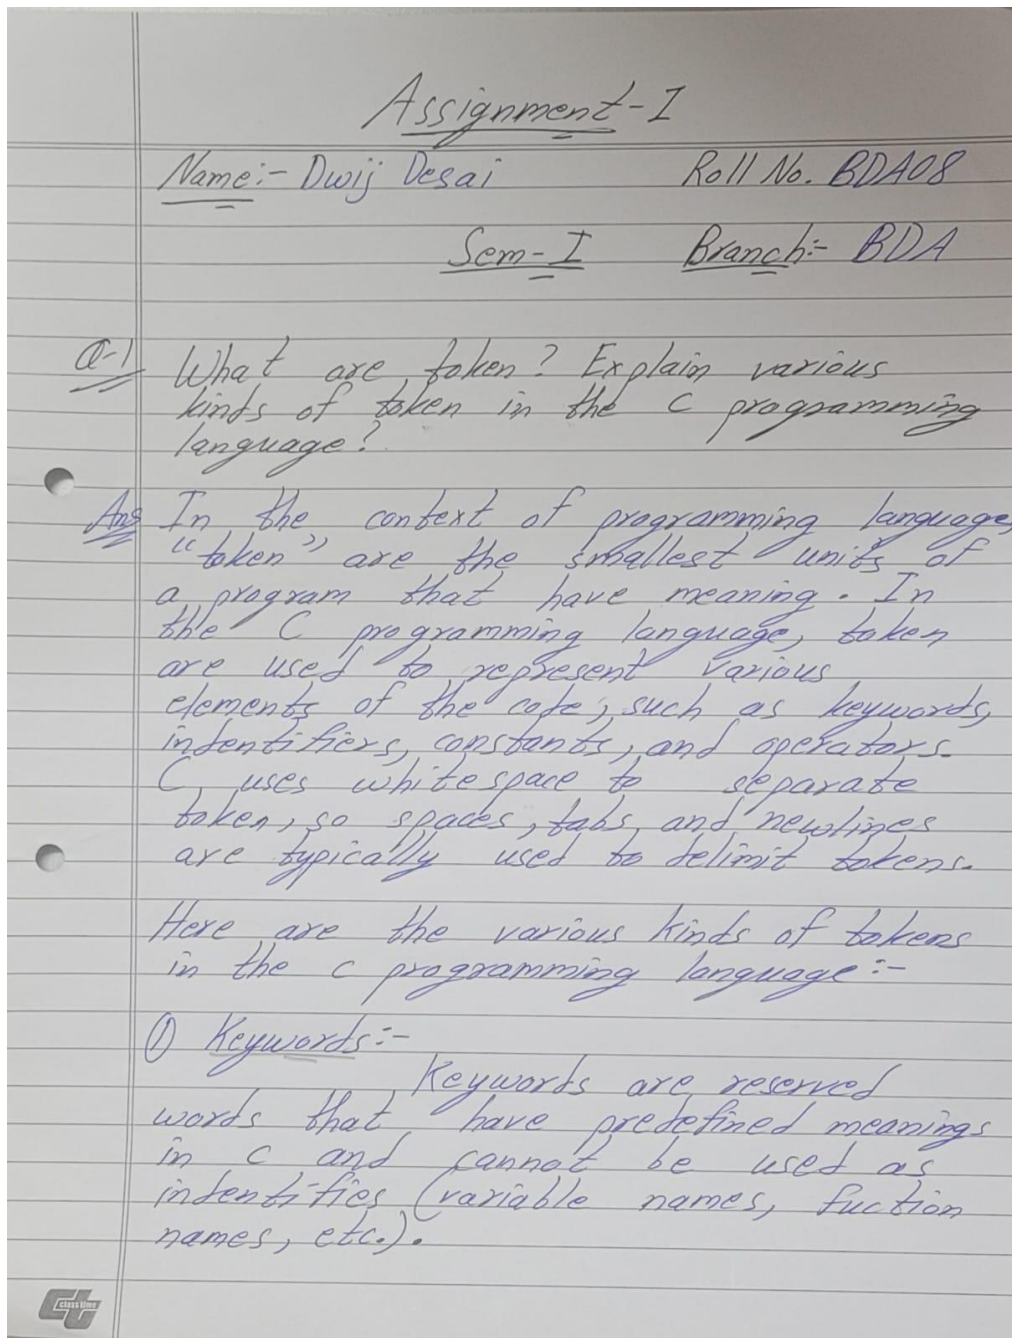 Assignment-I
Name:- Dwij Desai Roll No. BDA08
Sem-I Branch:- BDA
Q-1 What are token? Explain various
kinds of token in the C programming
language?
Ans In the context of programming language,
"token" are the smallest units of
a program that have meaning. In
the C programming language, token
are used to represent various
elements of the code, such as keywords,
indentifiers, constants, and operators.
C uses whitespace to separate
token, so spaces, tabs, and newlines
are typically used to delimit tokens.
Here are the various kinds of tokens
in the C programming language:-
① Keywords:-
Keywords are reserved
words that have predefined meanings
in C and cannot be used as
indentifies (variable names, fuction
names, etc.).
ct classtime